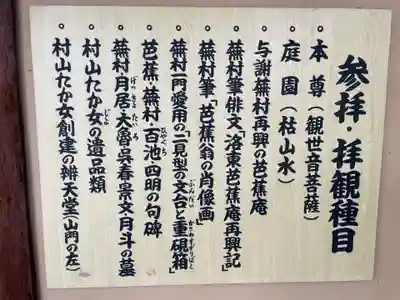 参拝・拝観種目
・本尊(観世音菩薩)
・庭園(枯山水)
・与謝蕪村再興の芭蕉庵
・蕪村筆俳文「洛東芭蕉庵再興記」
・蕪村筆「芭蕉翁の肖像画」
・蕪村一門愛用の「二見型の文台と重硯箱」
・芭蕉・蕪村・百池・四明の句碑
・蕪村・月居・大魯・呉春・景文・月斗の墓
・村山たか女の遺品類
・村山たか女創建の辨天堂(山門の左)